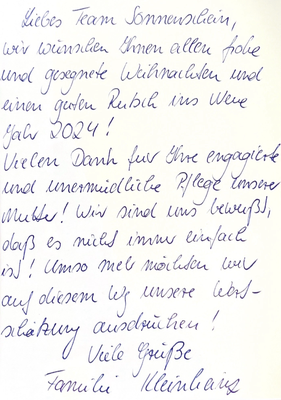 Liebes Team Sonnenschein,
wir wünschen Ihnen allen frohe
und gesegnete Weihnachten und
einen guten Rutsch ins Neue
Jahr 2024!
Vielen Dank für Ihre engagierte
und unermüdliche Pflege unserer
Mutter! Wir sind uns bewußt,
daß es nicht immer einfach
ist! Umso mehr möchten wir
auf diesem Weg unsere Wert-
schätzung ausdrücken!
Viele Grüße
Familie Kleinhenz